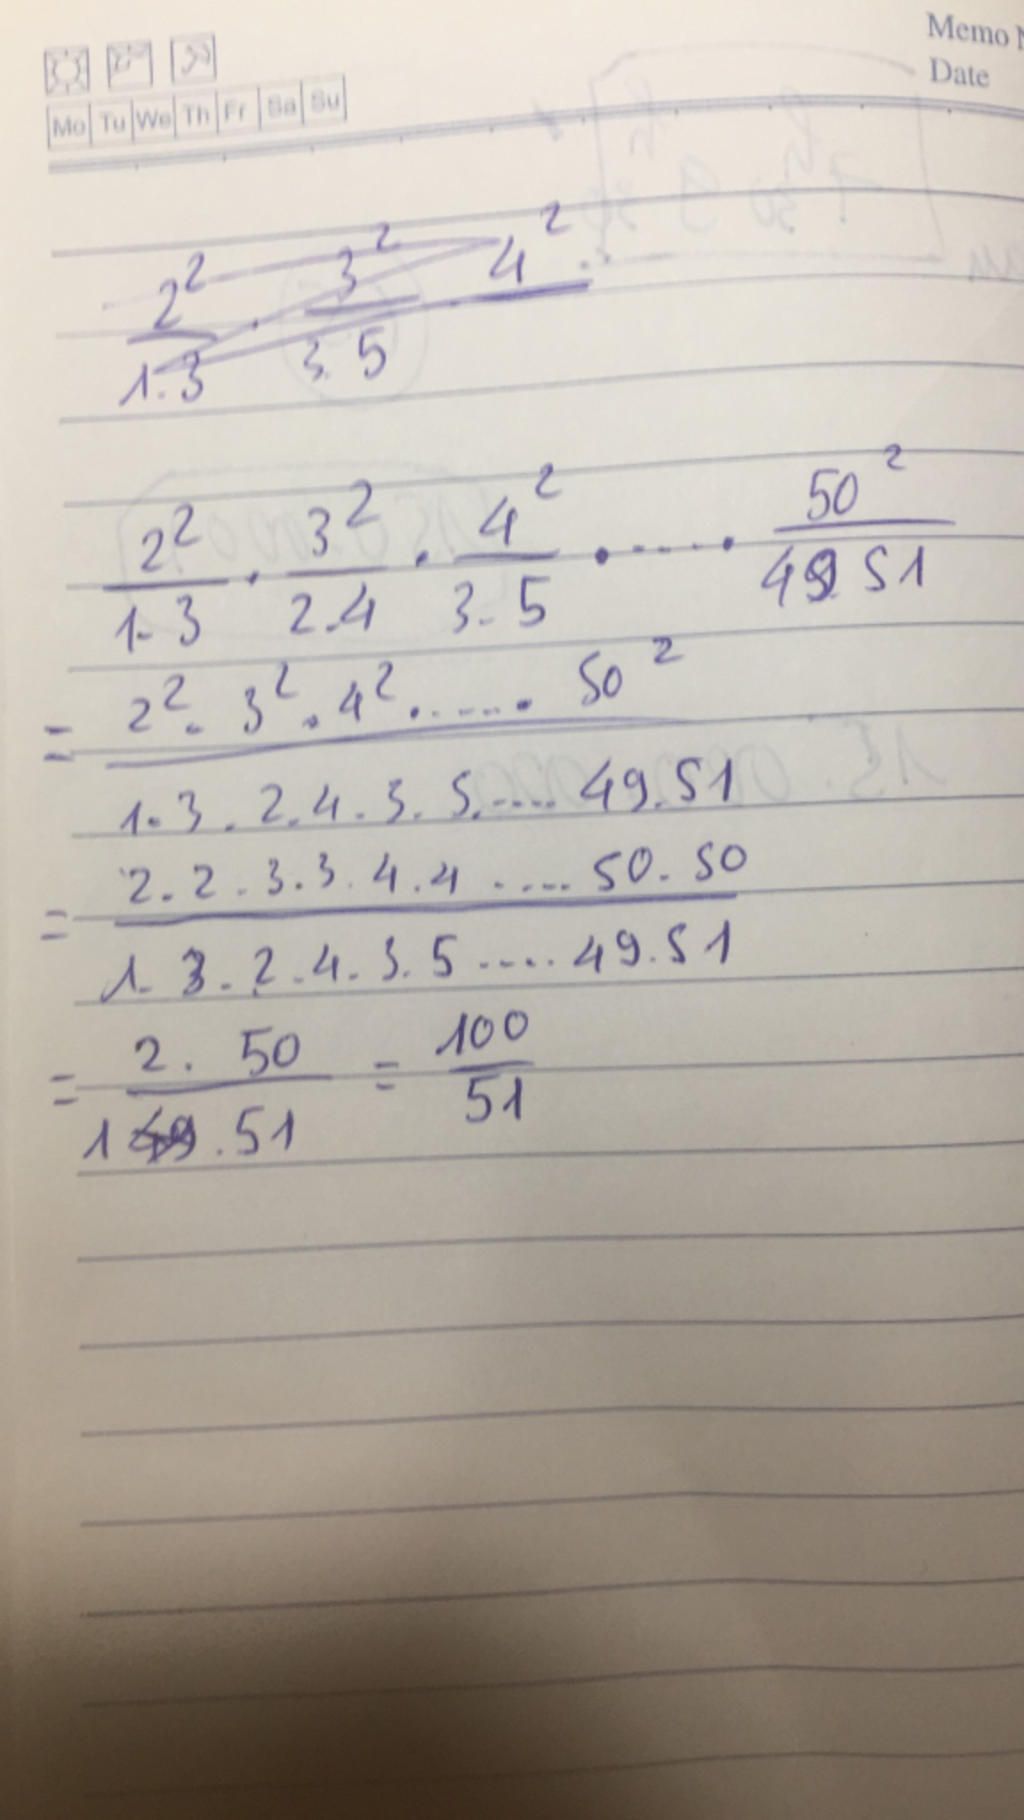 Memo N
Date
Mo Tu We Th Fr Sa Su
2² . 3² . 4²
1.3 3.5
2² . 3² . 4² . .... . 50²
1.3 2.4 3.5 49.51
= 2² . 3² . 4² ..... . 50²
1.3.2.4.3.5..... 49.51
= 2.2.3.3.4.4 ..... 50.50
1.3.2.4.3.5 .... 49.51
= 2. 50 = 100
1 .51 51